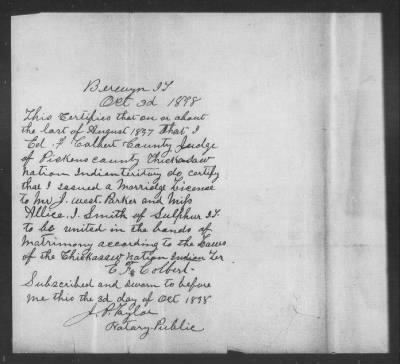 Berwyn I.T.
Oct 3d 1898
This Certifies that on or about
the last of August 1897 that I
Ed. F Colbert County Judge
of Pickens county Chickasaw
Nation Indian teritory do certify
that I issued a Marridge License
to Mr J. West Parker and Miss
Allice. I. Smith of Sulphur I.T.
to be united in the bonds of
Matrimony according to the Laws
of the Chickasaw Nation Indian Ter
E F Colbert
Subscribed and sworn to before
me this the 3d day of Oct 1898
J. P. Taylor
Notary Public